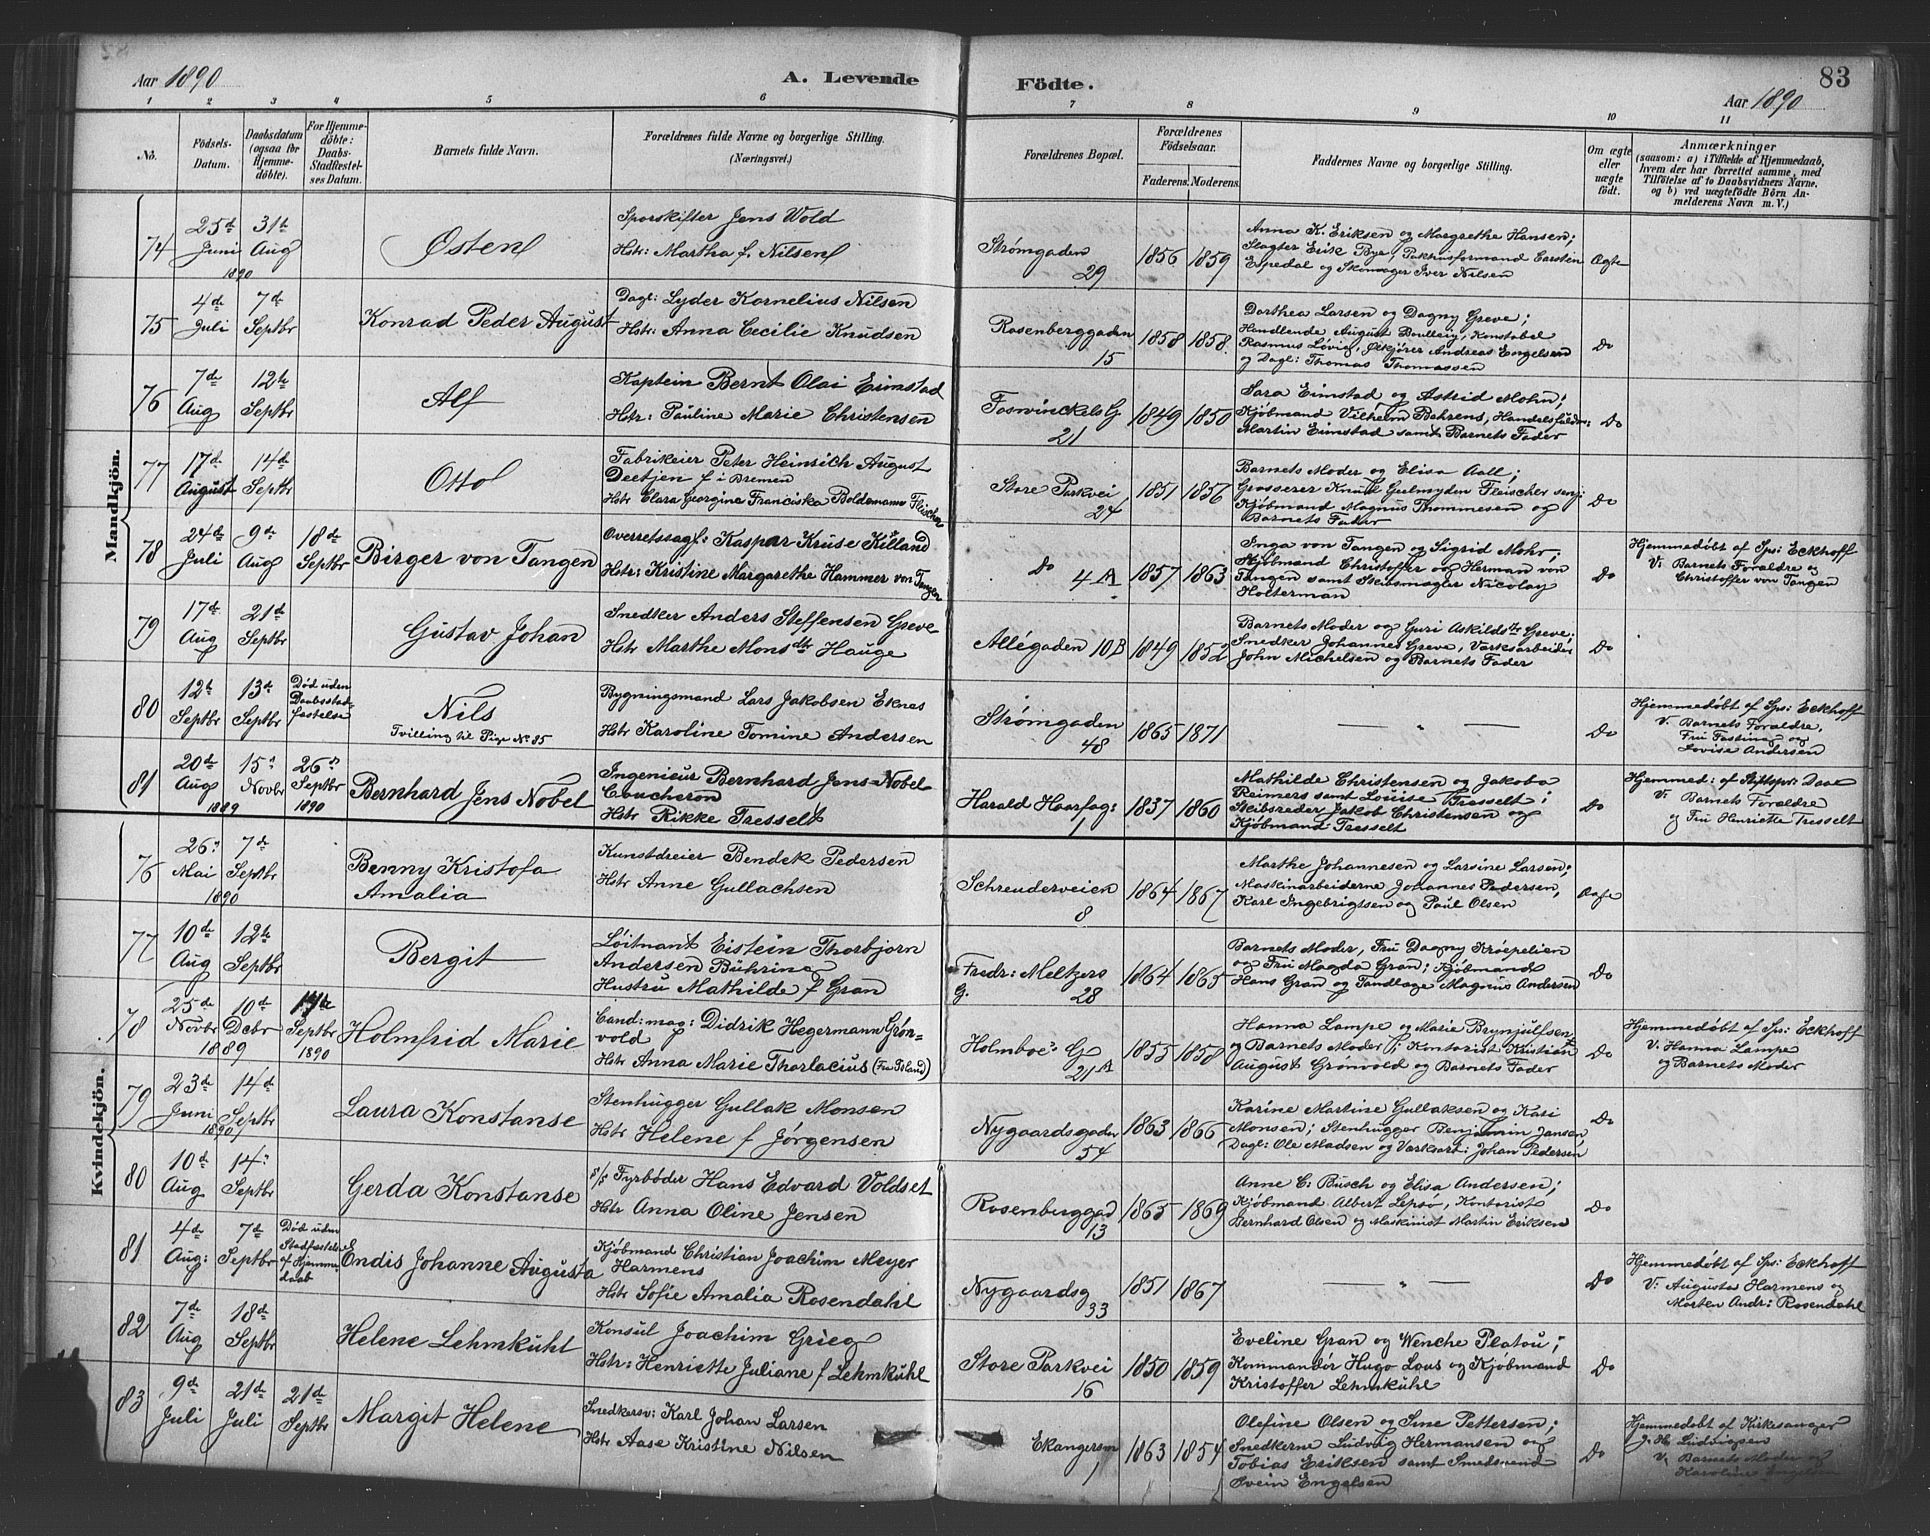 Aar 1890
A. Levende Födte.
83
Aar 1890
1 2 3 4 5 6 7 8 9 10 11
No.
Födsels-Datum.
Daabsdatum (ogsaa for Hjemme-döbte).
For Hjemme-döbte: Daabs-Stadfæstel-ses Datum.
Barnets fulde Navn.
Forældrenes fulde Navne og borgerlige Stilling.
(Næringsvei.)
Forældrenes Bopæl.
Forældrenes Födselsaar.
Faderens. Moderens.
Faddernes Navne og borgerlige Stilling.
Om ægte eller uægte födt.
Anmærkninger
(saasom: a) i Tilfælde af Hjemmedaab, hvem der har forrettet samme, med Tilföielse af to Daabsvidners Navne, og b) ved uægtefödte Börn An-melderens Navn m. V.)
Mandkjön.
74
25de Juni 1890
31te Aug
Østen
Sporskifter Jens Wold
Hstr: Martha f. Nilsen
Strømgaden 29
1856 1859
Anna K. Eriksen og Margrethe Hansen;
Slagter Erik Bye, Pakhusformand Carsten
Espedal og Skomager Iver Nilsen
Ægte
75
4de Juli
7de Septbr
Konrad Peder August
Dagl: Lyder Kornelius Nilsen
Hstr: Anna Cecilie Knudsen
Rosenberggaden 15
1858 1858.
Dorthea Larsen og Dagny Greve;
Handlende August Konstabel
Rasmus Løvig, Andreas Engelsen
og Dagl: Thomas Thomassen
Do
76
7de Aug
12te Septbr
Alf
Kaptein Bernt Olai Eimstad
Hstr: Pauline Marie Christensen
Foswinckels G 21
1849 1850
Sara Eimstad og Astrid Mohn;
Kjøbmand Vilhelm Behrens,
Martin Eimstad samt Barnets Fader
Do
77
17de August
14de Septbr
Otto
Fabrikeier Peter Heinrich August
Deetjen f i Bremen
Hstr Clara Georgine Franciska Boldemann Fleischer
Store Parkvei 24
1851 1856
Barnets Moder og Elisa Aall;
Grosserer Knud Geelmyden Fleischer senj:
Kjøbmand Magnus Thommesen og
Barnets Fader
Do
78
24de Juli
9de Aug
18de Septbr
Birger von Tangen
Overretssagf: Kaspar Kruse Killand
Hstr: Kristine Margarethe Hammer von Tangen
Do 4 A
1857 1863
Inga von Tangen og Sigrid Mohr;
Kjøbmand Christoffer og Herman von
Tangen samt Skibsmægler Nicolay
Holterman
Do
Hjemmedøbt af Sps: Eckhoff
V: Barnets Forældre og
Christoffer von Tangen
79
17de Aug
21de Septbr
Gustav Johan
Snedker Anders Steffensen Greve
Hstr Marthe Monsdtr Hauge
Allégaden 10B
1849 1852
Barnets Moder og Guri Askildsdtr Greve;
Snedker Johannes Greve, Værksarbeider
John Michelsen og Barnets Fader
Do
80
12te Septbr
13de Septbr
Død uden Daabsstad-fæstelse
Nils
Tvilling til Pige No 85
Bygningsmand Lars Jakobsen Eknes
Hstr Karoline Tomine Andersen
Strømgaden 48
1865 1871
— " —
Do
Hjemmedøbt af Sps: Eckhoff
V. Barnets Forældre,
Fru Fasting og
Lovise Andersen
81
20de Aug 1889
15de Novbr
26de Septbr 1890
Bernhard Jens Nobel
Ingeniør Bernhard Jens Nobel
Coucheron
Hstr Rikke Tresselt
Harald Haarfag: 1
1837 1860
Mathilde Christensen og Jakoba
Reimers samt Louise Tresselt;
Skibsreder Jakob Christensen og
Kjøbmand Tresselt
Do
Hjemmed: af Stiftspr: Daae
V: Barnets Forældre
og Fru Henriette Tresselt
Kvindekjön.
76
26de Mai 1890
7de Septbr
Benny Kristofa
Amalia
Kunstdreier Bendek Pedersen
Hstr Anne Gullachsen
Schreuderveien 8
1864 1867
Marthe Johannesen og Larsine Larsen;
Maskinarbeiderne Johannes Pedersen,
Karl Ingebrigtsen og Paul Olsen
77
10de Aug
12te Septbr
Bergit
Løitnant Eistein Thorbjørn
Andersen Bühring
Hustru Mathilde f Gran
Fredr: Meltzers G. 28
1864 1865
Barnets Moder, Fru Dagny Kroepelien
og Fru Magda Gran; Kjøbmand
Hans Gran og Tandlæge Magnus Andersen
Do
78
25de Novbr 1889
10de Dcbr
Septbr 1890
Holmfrid Marie
Cand: mag: Didrik Hegermann Grøn-
vold
Hstr Anna Marie Thorlacius (Fra Island)
Holmboes G 21 A
1855 1858
Hanna Lampe og Marie Brynjulfsen
og Barnets Moder; Kontorist Kristian
August Grønvold og Barnets Fader
Do
Hjemmedøbt af Sps: Eckhoff
V. Hanna Lampe
og Barnets Moder
79
23de Juni 1890
14de Septbr
Laura Konstanse
Stenhugger Gullak Monsen
Hstr Helene f Jørgensen
Nygaardsgaden 54
1863 1866
Karine Martine Gullaksen og Kari
Monsen; Stenhugger Benjamin Jansen,
Dagl: Ole Madsen og Værksarb: Johan Pedersen
Do
80
10de Aug
14de Septbr
Gerda Konstanse
s/s Fyrbøder Hans Edvard Voldset
Hstr Anna Oline Jensen
Rosenberggad 13
1865 1869
Anne C: Busch og Elisa Andersen;
Kjøbmand Albert Lepsø, Kontorist
Bernhard Olsen og Maskinist Martin Eriksen
Do
81
4de Aug:
7de Septbr
Død uden Stadfæstelse af Hjemme-daab
Endis Johanne Augusta
Kjøbmand Christian Joachim Meyer
Harmens
Hstr Sofie Amalia Rosendahl
Nygaardsg 33
1851 1867
— " —
Do
Hjemmedøbt af Sps: Eckhoff
V: Augusta Harmens og
Morten Andr: Rosendahl
82
7de Aug
18de Septbr
Helene Lehmkuhl
Konsul Joachim Grieg
Hstr: Henriette Juliane f Lehmkuhl
Store Parkvei 16
1850 1859
Eveline Gran og Wenche Platou;
Kommandør Hugo Lous og Kjøbmand
Kristoffer Lehmkuhl
Do
83
9de Juli
21de Juli
21de Septbr
Margit Helene
Snedkersv: Karl Johan Larsen
Hstr Aase Kristine Nilsen
Ekangersm 1
1863 1854
Olefine Olsen og Sine Pettersen;
Snedkerne Ludvig Hermansen og
Tobias Eriksen samt Smedsvend
Svein Engelsen
Do
Hjemmedøbt af Kirkesanger
Ludvigsen
V. Barnets Moder og
Karoline Engelsen